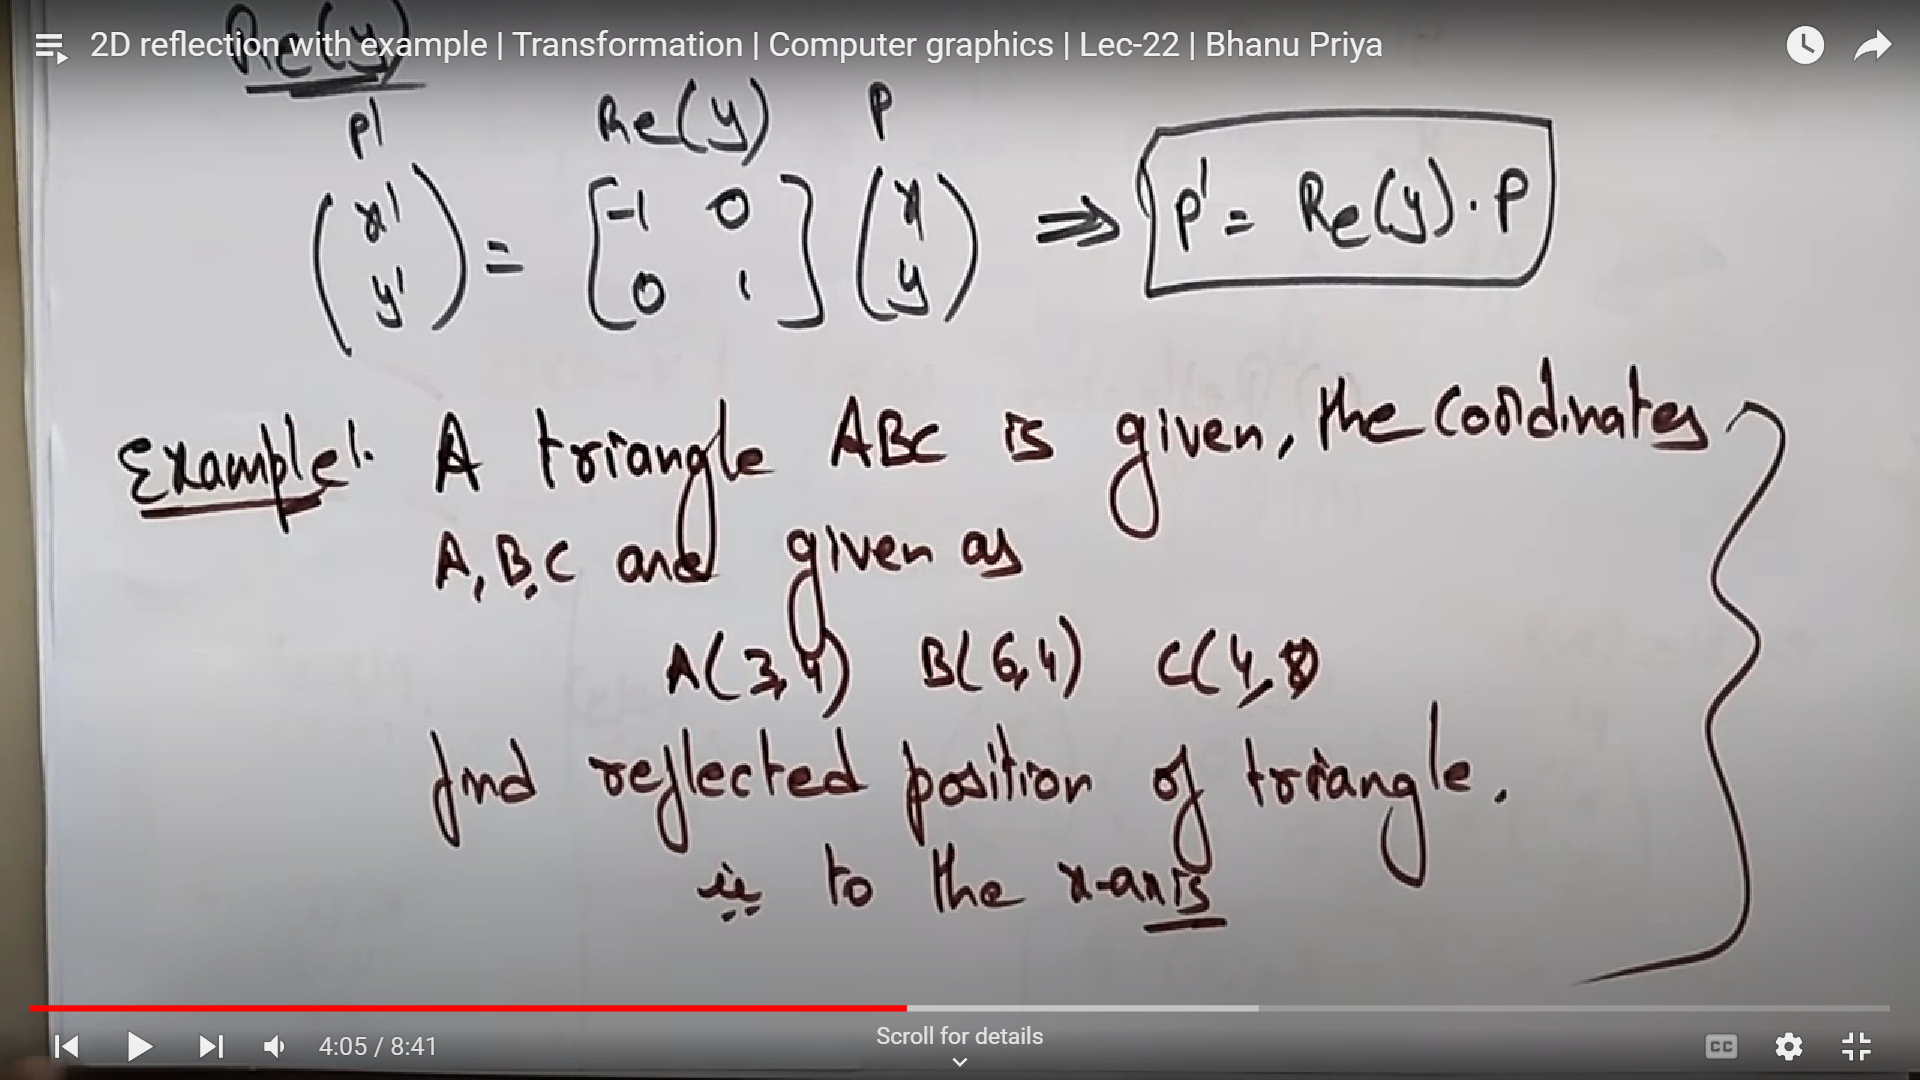 2D reflection with example | Transformation | Computer graphics | Lec-22 | Bhanu Priya
Re(y)
P' Re(y) P
(x' y') = [-1 0 0 1] (x y) ⇒ P' = Re(y) · P
Example1. A triangle ABC is given, the coordinates
A, B, C and given as
A(3,4) B(6,4) C(4,
find reflected position of triangle.
ie to the x-axis
4:05 / 8:41
Scroll for details
CC